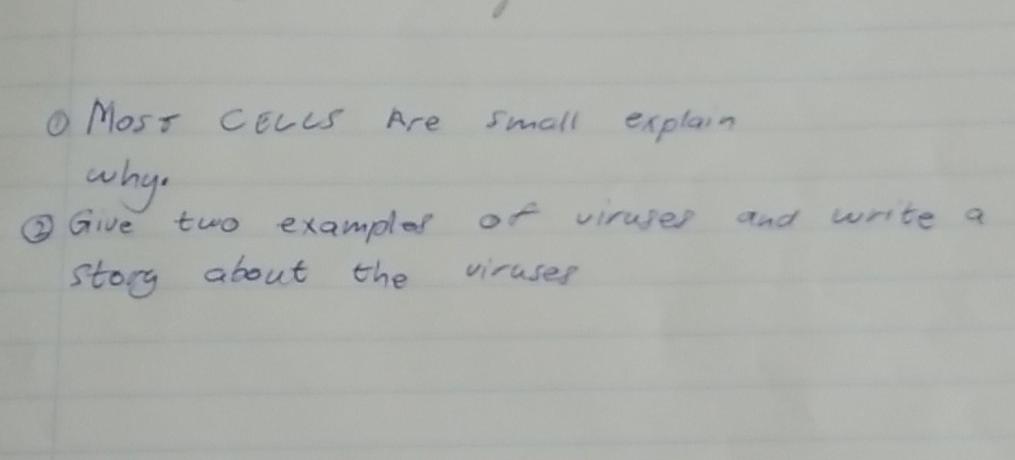 ① Most CELLS Are small explain
why.
② Give two examples of viruses and write a
story about the viruses